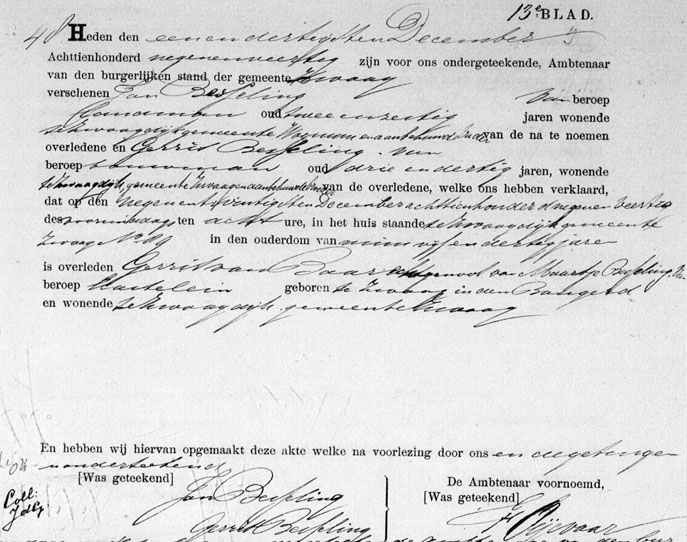 13e BLAD.
48 Heden den eenendertigsten December
Achttienhonderd negenveertig zijn voor ons ondergeteekende, Ambtenaar
van den burgerlijken stand der gemeente Zwaag
verschenen Jan Besseling van beroep
Landman oud tweeenzestig jaren wonende
te Zwaagdijk gemeente Wognum en aanbehuwd Vader van de na te noemen
overledene en Gerrit Besseling van
beroep bouwman oud drie en dertig jaren, wonende
te Zwaagdijk, gemeente Zwaag en aanbehuwd Broeder van de overledene, welke ons hebben verklaard,
dat op den negenentwintigsten December achttienhonderd negen en veertig
des voormiddag, ten acht ure, in het huis staande te Zwaagdijk gemeente
Zwaag No 49 in den ouderdom van ruim vijf en dertig jare
is overleden Gerrit van Baar echtgenoot van Maartje Besseling. Van
beroep Kastelein geboren te Zwaag in den Bangerd
en wonende te Zwaagdijk gemeente Zwaag
En hebben wij hiervan opgemaakt deze akte welke na voorlezing door ons en de getuigen
is onderteekend
[Was geteekend]
De Ambtenaar voornoemd,
[Was geteekend]
Coll:
Jan Besseling
Gerrit Besseling